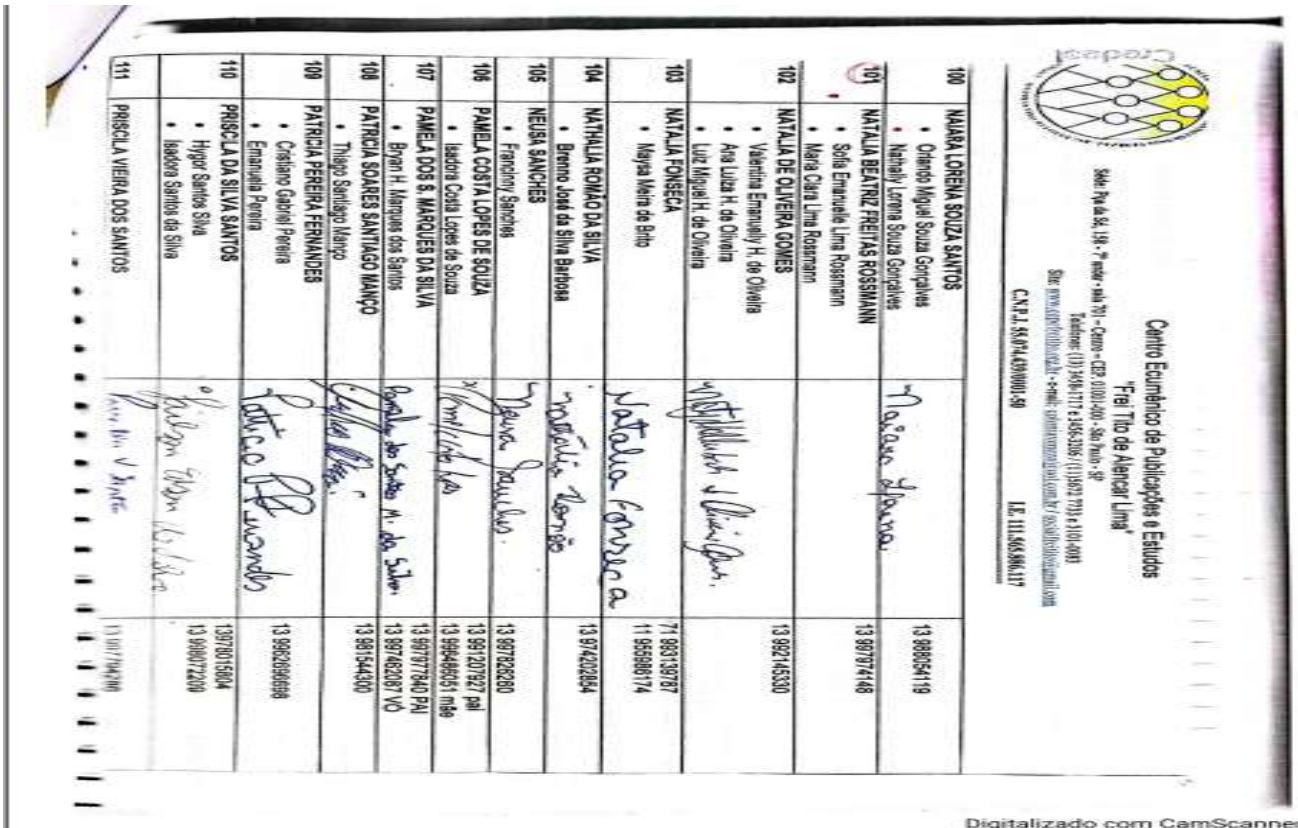 Credesi
Centro Ecumênico de Publicações e Estudos
"Frei Tito de Alencar Lima"
Sede: Pça da Sé, 158 - 7º andar - sala 701 – Centro – CEP. 01001-000 - São Paulo - SP
C.N.P.J. I.E. 111.565.886.117
100 NAIARA LORENA SOUZA SANTOS
• Orlando Miguel Souza Gonçalves
• Nathally Lorena Souza Gonçalves
Naiara Lorena
13 988054119
101 NATALIA BEATRIZ FREITAS ROSSMANN
• Sofia Emanuelle Lima Rossmann
• Maria Clara Lima Rossmann
13 997974148
102 NATALIA DE OLIVEIRA GOMES
• Valentina Emanuelly H. de Oliveira
• Ana Luiza H. de Oliveira
• Luiz Miguel H. de Oliveira
13 992145330
103 NATALIA FONSECA
• Maysa Meira de Brito
Natalia Fonseca
71 993139787
11 955988174
104 NATHALIA ROMÃO DA SILVA
• Brenno José da Silva Barbosa
Nathália Romão
13 974202864
105 NEUSA SANCHES
• Francinny Sanches
Neusa Sanches.
13 997828280
106 PAMELA COSTA LOPES DE SOUZA
• Isadora Costa Lopes de Souza
13 991207927 pai
13 996486051 mãe
107 PAMELA DOS S. MARQUES DA SILVA
• Bryan H. Marques dos Santos
Pamela dos Santos M. da Silva
13 997977840 PAI
13 997462087 VÓ
108 PATRICIA SOARES SANTIAGO MANÇO
• Thiago Santiago Manço
13 981544300
109 PATRICIA PEREIRA FERNANDES
• Cristiano Gabriel Pereira
• Emanuela Pereira
Patricia P Fernandes
13 9962696698
110 PRISCLA DA SILVA SANTOS
• Hygor Santos Silva
• Isadora Santos da Silva
13978015804
13 998072209
111 PRISCILA VIEIRA DOS SANTOS
Digitalizado com CamScanner